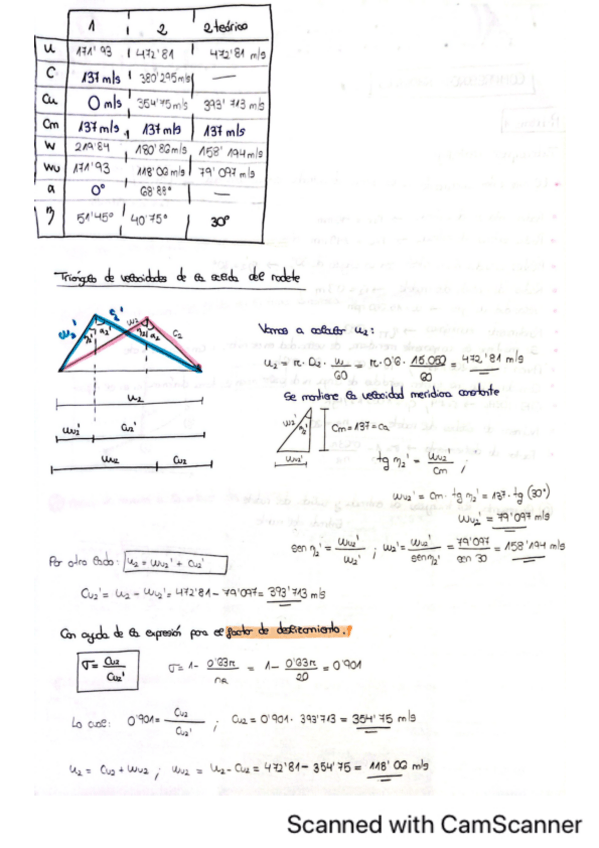 1 2 2 teórico
u 171'93 472'81 472'81 m/s
C 137 m/s 380'295 m/s —
Cu 0 m/s 354'75 m/s 393'713 m/s
Cm 137 m/s 137 m/s 137 m/s
W 219'84 180'86 m/s 158'194 m/s
Wu 171'93 118'06 m/s 79'097 m/s
a 0° 68'88° —
η 51'45° 40'75° 30°
Triángulo de velocidades de la salida del rodete
Vamos a calcular u₂:
u₂ = π · D₂ · w/60 = π · 0'6 · 15.050/60 = 472'81 m/s
Se mantiene la velocidad meridica constante
w₂' η₂' Cm = 137 = Ca
Wu₂'
tg η₂' = Wu₂'/Cm ;
Wu₂' = Cm · tg η₂' = 137 · tg (30°)
Wu₂' = 79'097 m/s
sen η₂' = Wu₂'/W₂' ; W₂' = Wu₂'/sen η₂' = 79'097/sen 30 = 158'194 m/s
u₂
Wu₂' Cu₂'
Wu₂ Cu₂
Por otro lado: u₂ = Wu₂' + Cu₂'
Cu₂' = u₂ - Wu₂' = 472'81 - 79'097 = 393'713 m/s
Con ayuda de la expresión para el factor de deslizamiento.
σ = Cu₂/Cu₂' σ = 1 - 0'63π/nR = 1 - 0'63π/20 = 0'901
Lo cual: 0'901 = Cu₂/Cu₂' ; Cu₂ = 0'901 · 393'713 = 354'75 m/s
u₂ = Cu₂ + Wu₂ ; Wu₂ = u₂ - Cu₂ = 472'81 - 354'75 = 118'06 m/s
Scanned with CamScanner